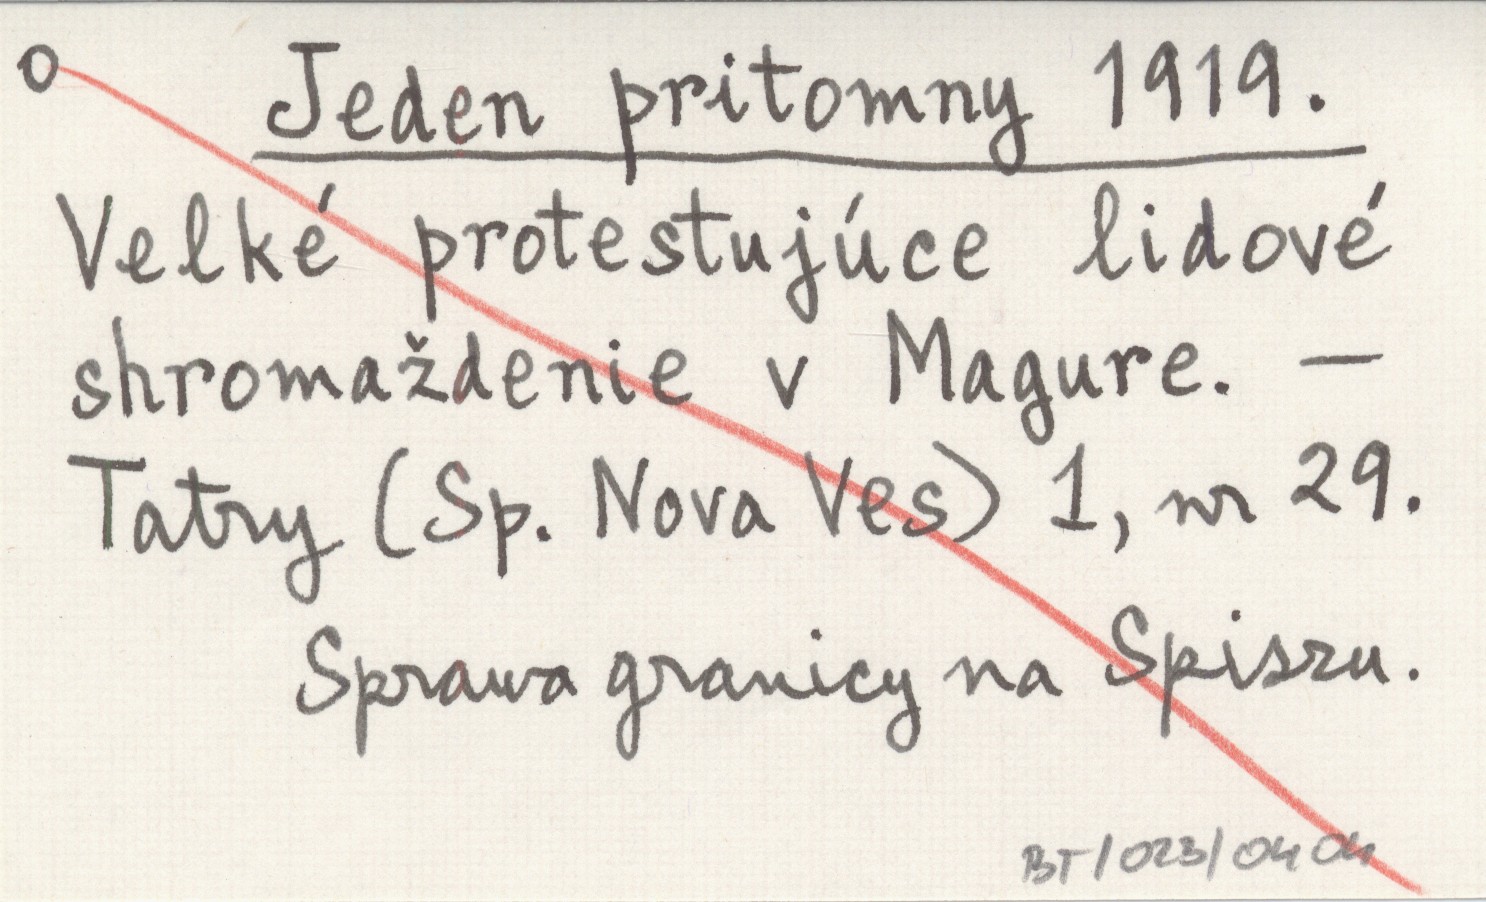 o
Jeden pritomny 1919.
Velké protestujúce lidové
shromaždenie v Magure. —
Tatry (Sp. Nova Ves) 1, nr 29.
Sprawa granicy na Spiszu.
BT/023/0404